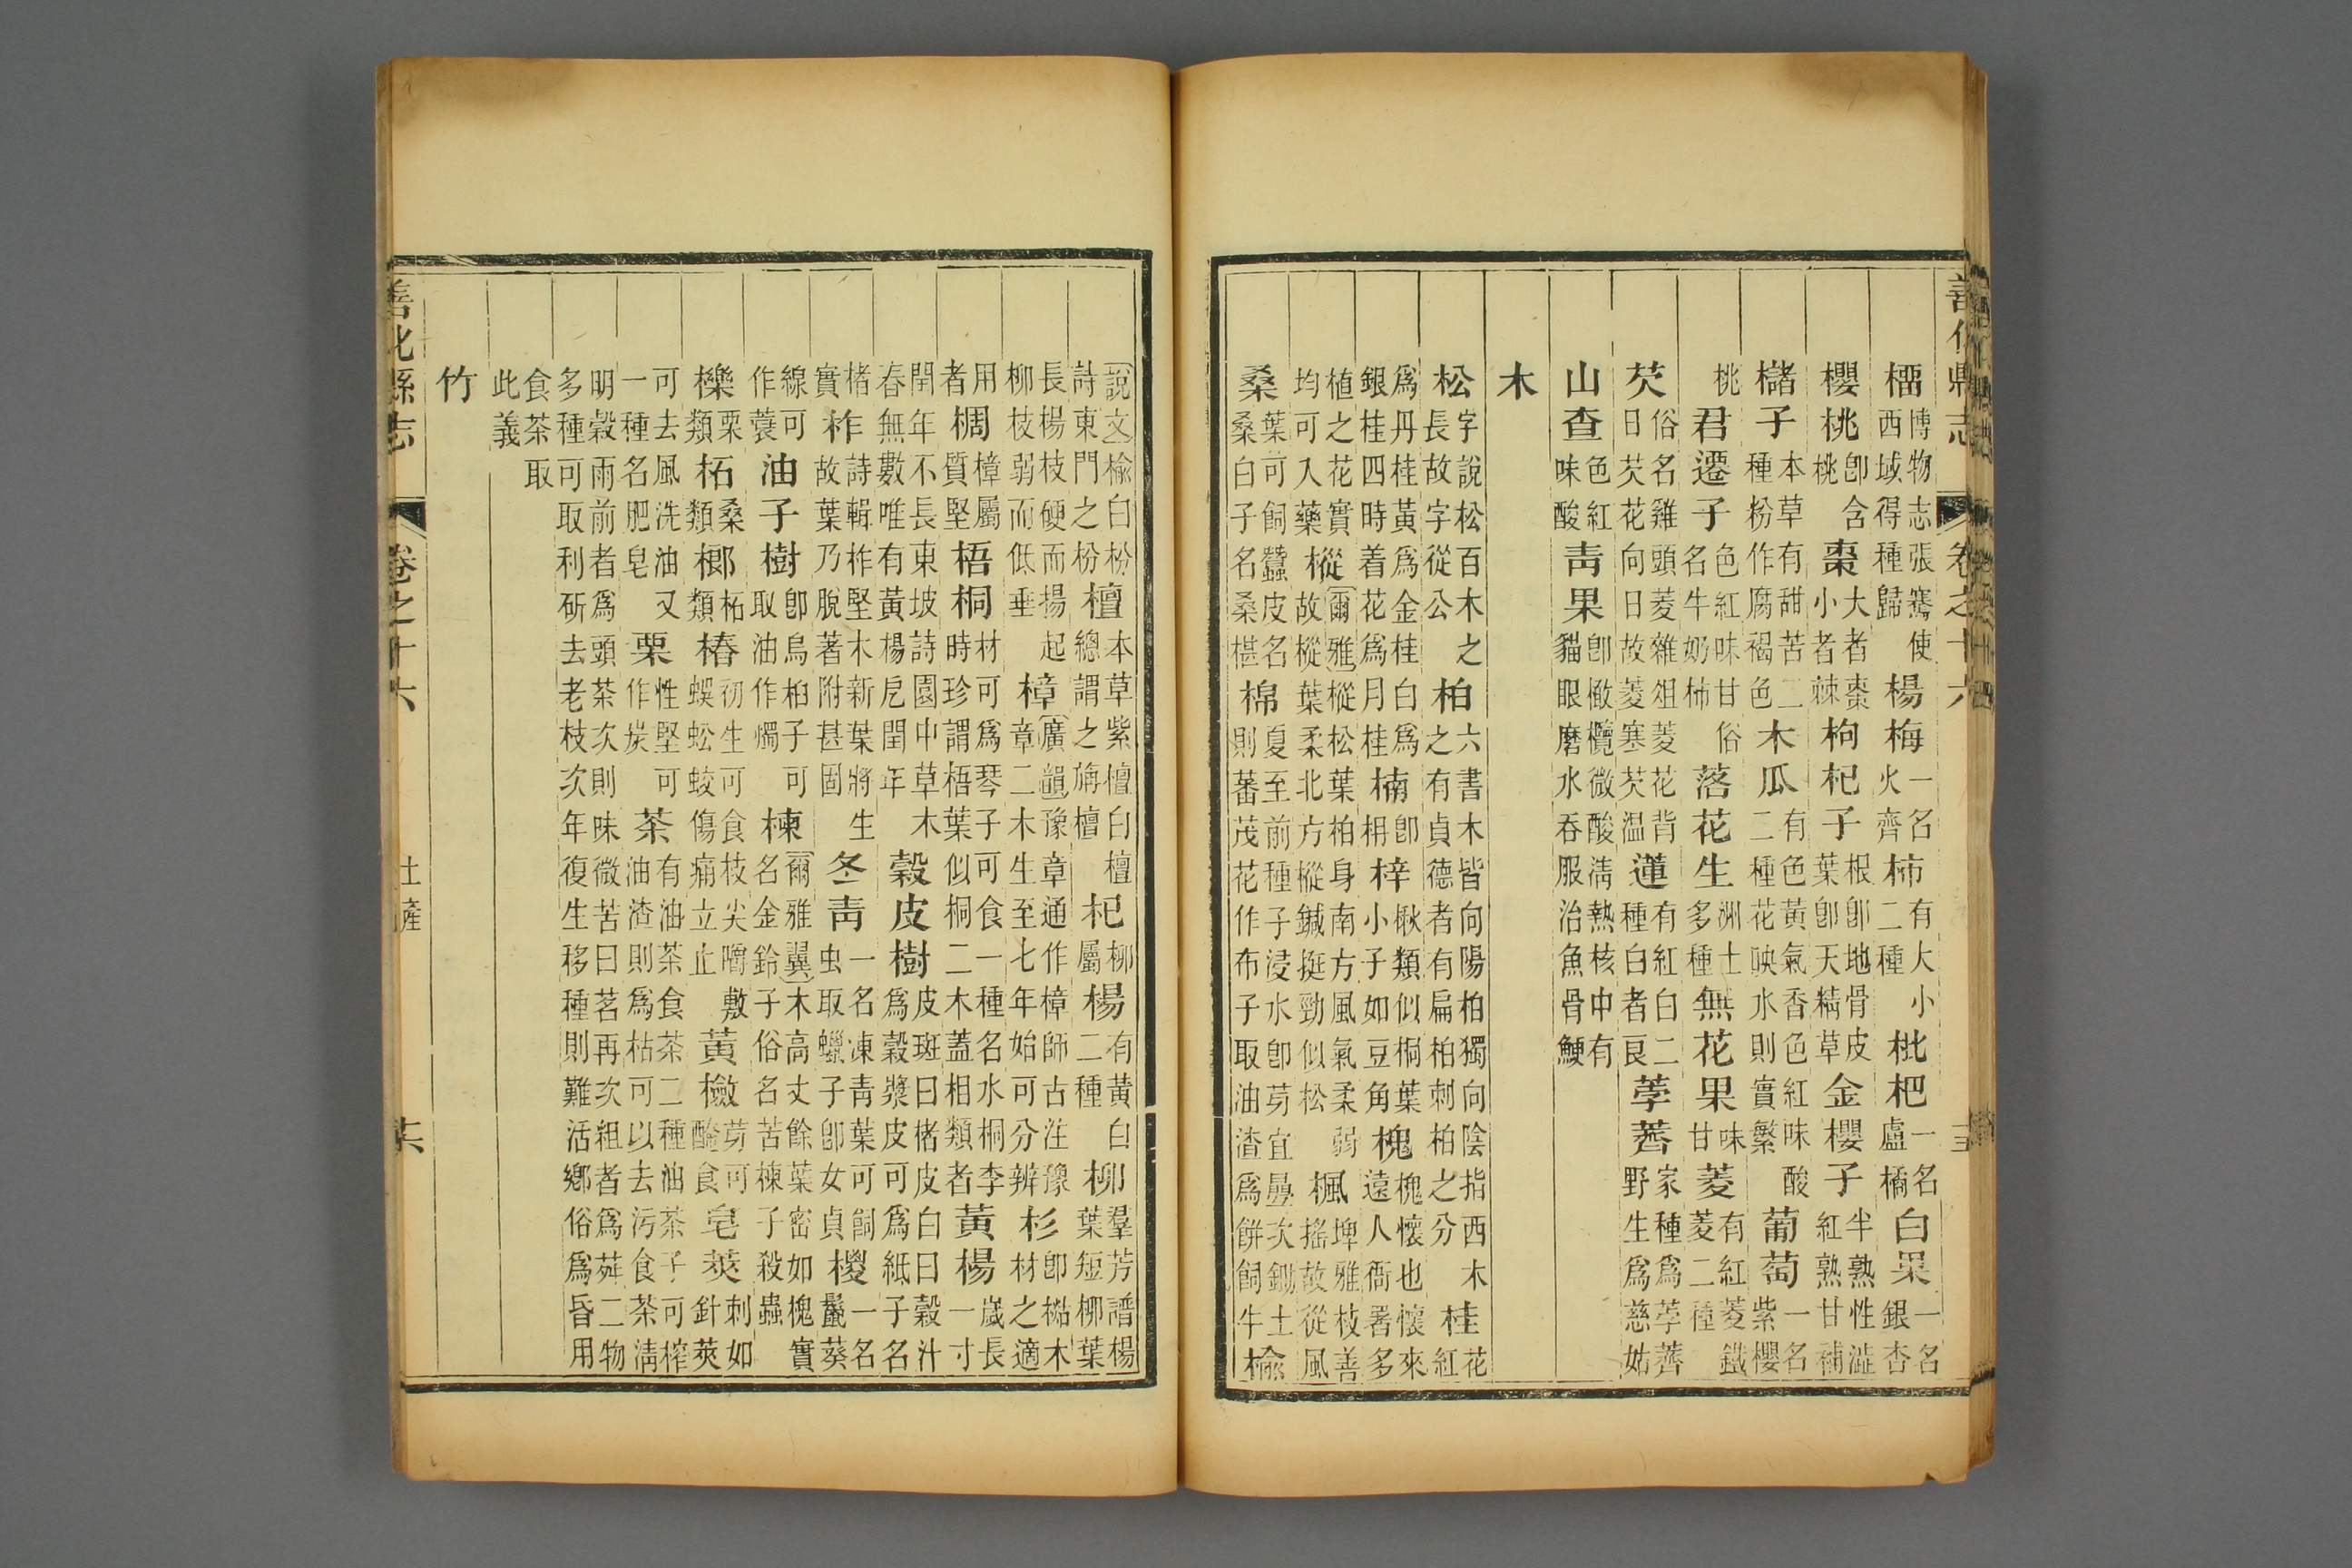 善化縣志 卷之十六
橊博物志張騫使西域得種歸楊梅一名火齊柿有大小二種枇杷一名盧橘白果一名銀杏
櫻桃卽含桃棗大者棗小者棘枸杞子根卽地骨皮葉卽天精草金櫻子半熟性澁紅熟甘補
櫧子本草有甜苦二種粉作腐褐色木瓜有色黃氣香色紅味酸二種花映水則實繁葡萄一名紫櫻
桃君遷子色紅味甘俗名牛奶柿落花生洲土多種無花果味甘菱有紅菱鐵菱二種
芡俗名雞頭菱雜俎菱花背日芡花向日故菱寒芡温蓮有紅白二種白者良荸薺家種爲荸薺野生爲慈姑
山查色紅味酸靑果卽橄欖微酸淸熱核中有貓眼磨水吞服治魚骨鯁
木
松字說松百木之長故字從公柏六書木皆向陽柏獨向陰指西木之有貞德者有扁柏刺柏之分桂花紅
爲丹桂黃爲金桂白爲銀桂四時着花爲月桂楠卽枬梓楸類似桐葉小子如豆角槐槐懷也懷來遠人衙署多
植之花實均可入藥樅爾雅樅松葉柏身南方風氣柔弱故樅葉柔北方樅鍼挺勁似松楓埤雅枝善搖故從風
桑葉可飼蠶皮名桑白子名桑椹棉夏至前種子浸水卽芴宜壘次鋤土則蕃茂花作布子取油渣爲餅飼牛榆
說文榆白枌詩東門之枌檀本草紫檀白檀總謂之旃檀杞柳屬楊有黃白二種柳羣芳譜楊葉短柳葉
長楊枝硬而揚起柳枝弱而低垂樟廣韻豫章通作樟師古注豫章二木生至七年始可分辨杉卽檆木材之適
用者椆樟屬質堅梧桐材可爲琴子可食一種名水桐李時珍謂梧葉似桐二木蓋相類者黃楊歲長一寸
閏年不長東坡詩園中草木春無數唯有黃楊厄閏年穀皮樹皮斑曰楮皮白曰穀汁爲穀漿皮可爲紙子名
楮實柞詩輯柞堅木新葉將生故葉乃脫著附甚固冬靑一名凍靑葉可飼虫取蠟子卽女貞椶一名鬣葵
線可作蓑油子樹卽烏桕子可取油作燭楝爾雅翼木高丈餘葉密如槐實名金鈴子俗名苦楝子殺蟲
櫟栗類柘桑類榔柘類椿初生可食枝尖嚼敷蜈蚣蛟傷痛立止黃芴可醃食皂莢刺如針莢
可去風洗油又一種名肥皂栗性堅可作炭茶有油茶食茶二種油茶子可榨油渣則爲枯可以去污食茶淸
明穀雨前者爲頭茶次則味微苦曰茗再次粗者爲荈二物多種可取利斫去老枝次年復生移種則難活鄉俗爲昏用
食茶取此義
竹
善化縣志 卷之十六 土產